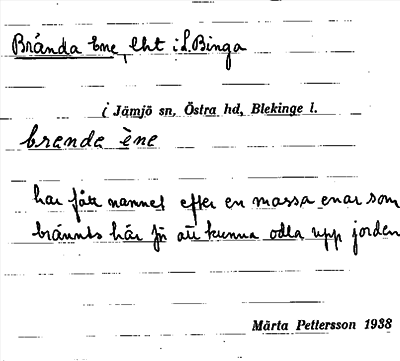 Brända Ene, lht i L. Binga
i Jämjö sn, Östra hd, Blekinge l.
brenda ène
har fått namnet efter en massa enar som
bränts här för att kunna odla upp jorden
Märta Pettersson 1938